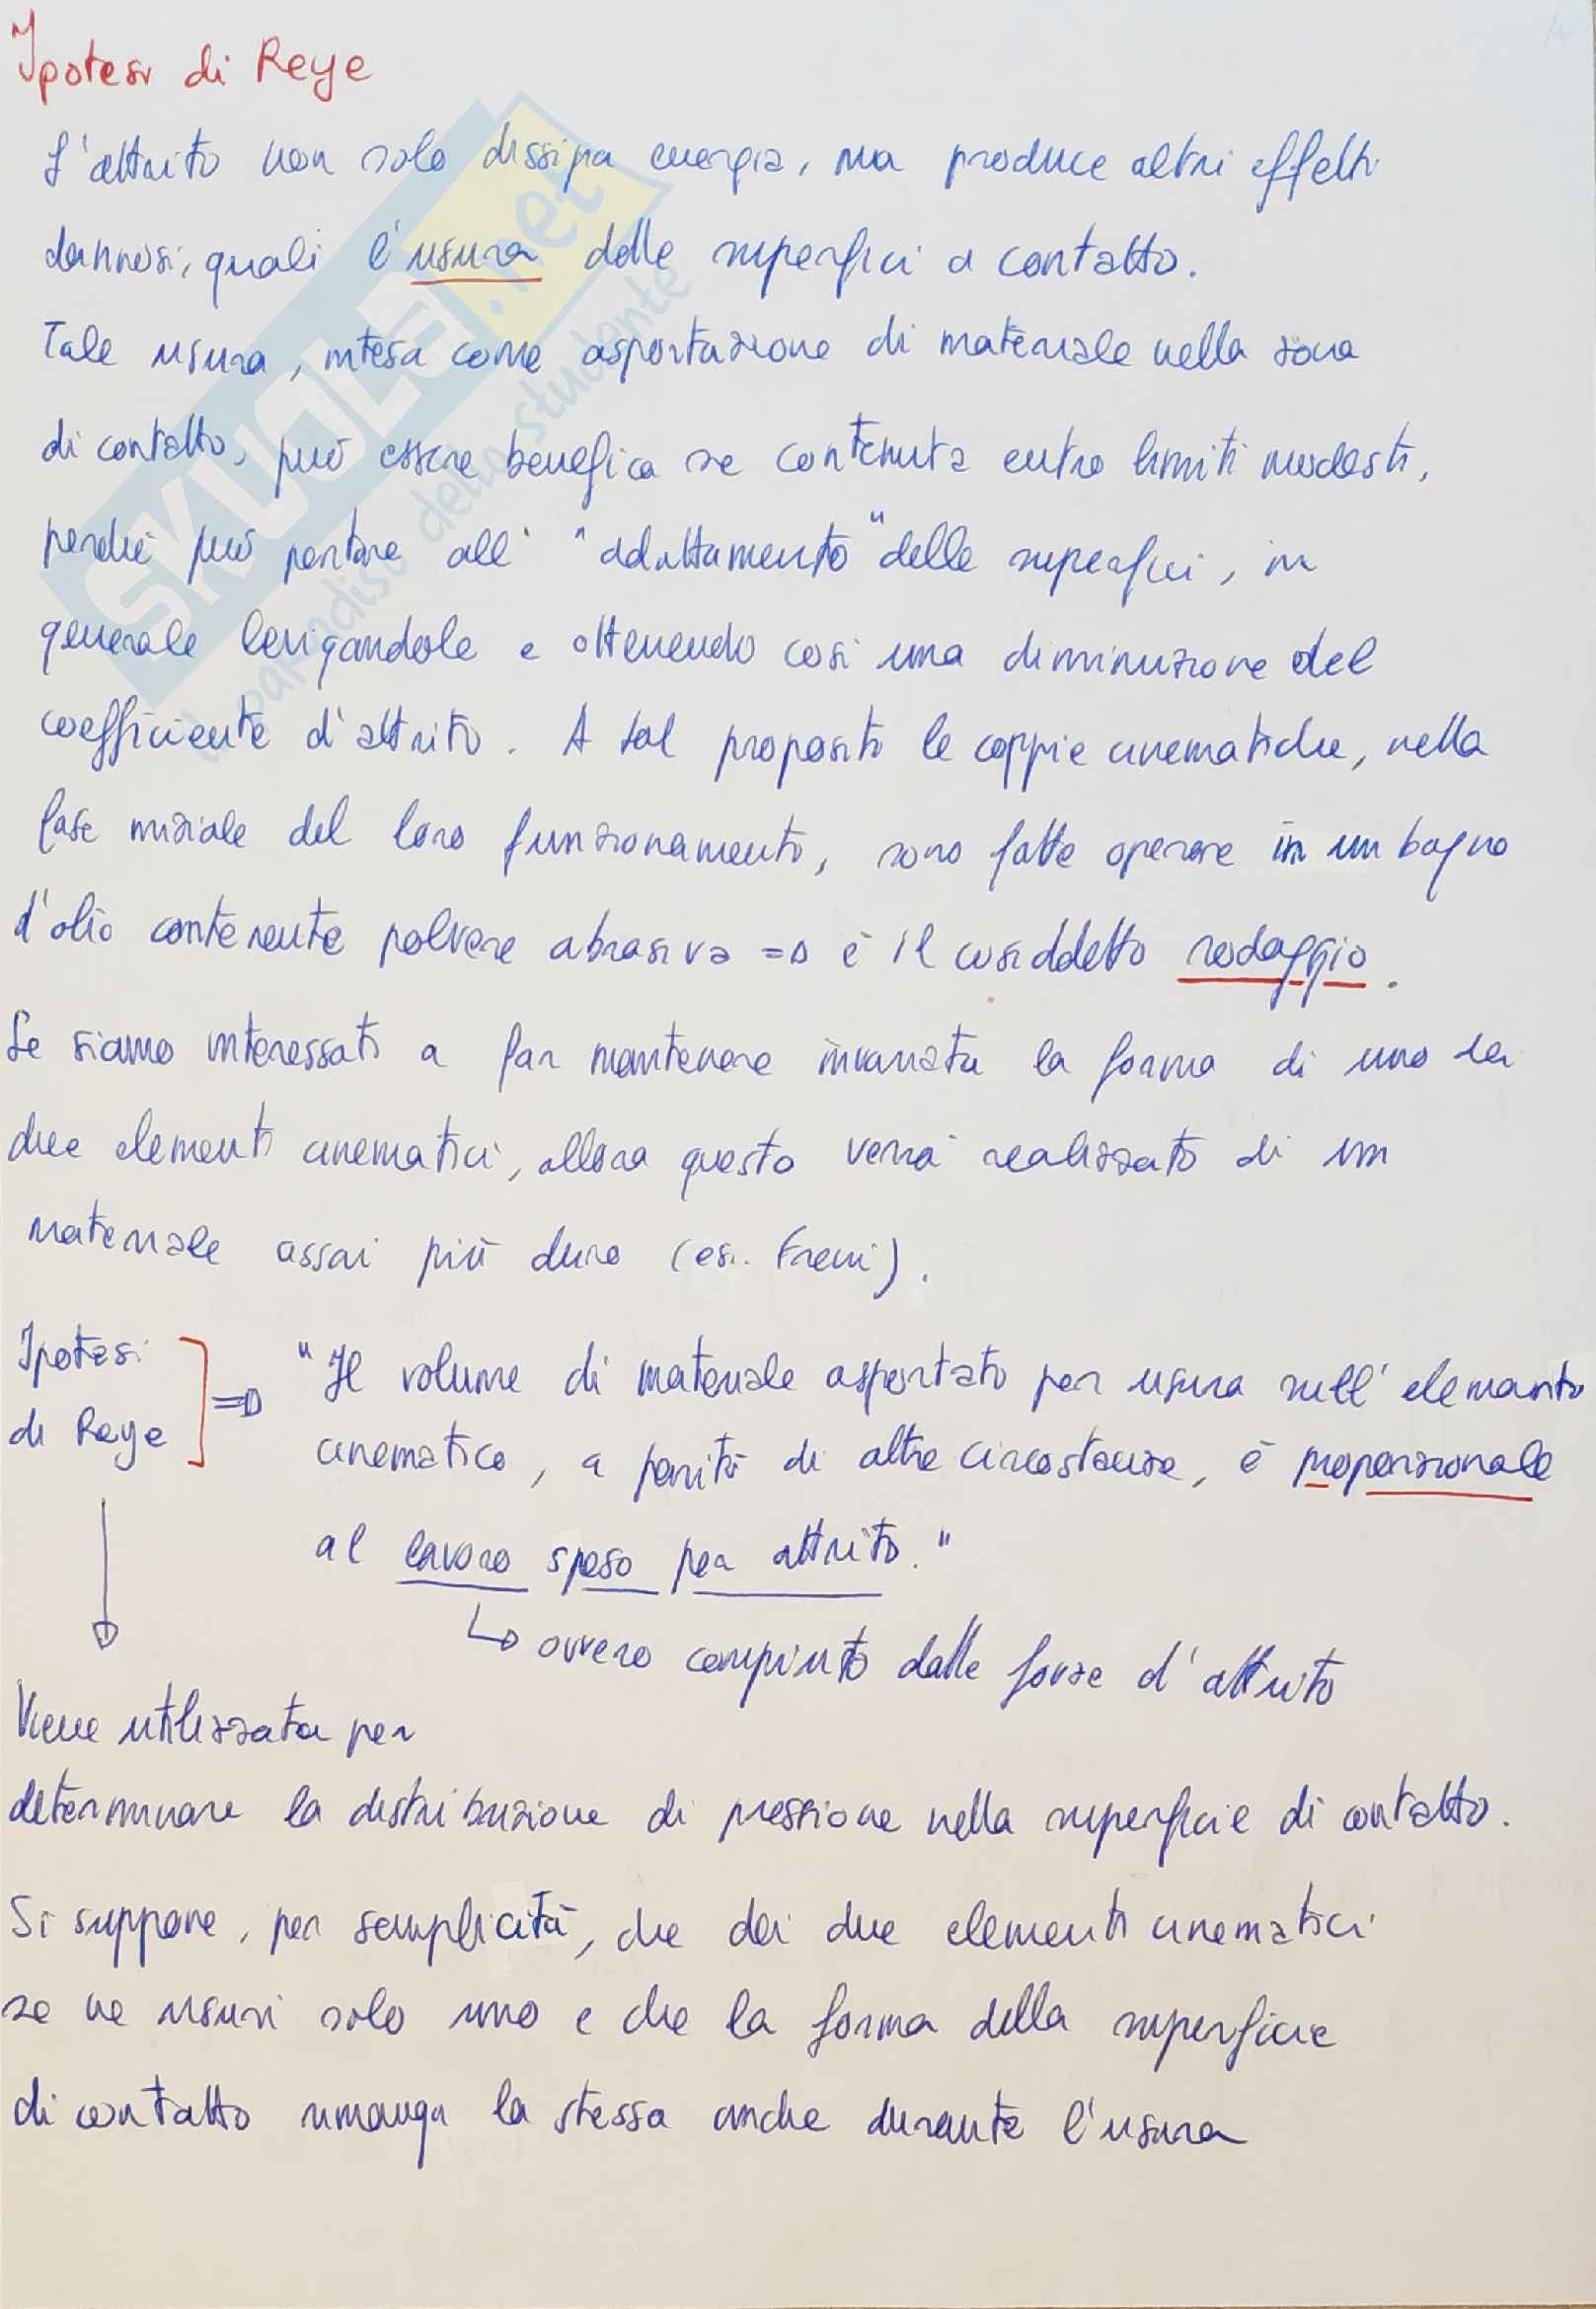 Ipotesi di Reye
L'attrito non solo dissipa energia, ma produce altri effetti
dannosi, quali l'usura delle superfici a contatto.
Tale usura, intesa come asportazione di materiale nella zona
di contatto, può essere benefica se contenuta entro limiti modesti,
perché può portare all' "adattamento" delle superfici, in
generale levigandole e ottenendo così una diminuzione del
coefficiente d'attrito. A tal proposito le coppie cinematiche, nella
fase iniziale del loro funzionamento, sono fatte operare in un bagno
d'olio contenente polvere abrasiva => è il cosiddetto rodaggio.
Se siamo interessati a far mantenere invariata la forma di uno dei
due elementi cinematici, allora questo verrà realizzato di un
materiale assai più duro (es.. Freni).
Ipotesi
di Reye
=> "Il volume di materiale asportato per usura sull'elemento
cinematico, a parità di altre circostanze, è proporzionale
al lavoro speso per attrito."
↳ ovvero compiuto dalle forze d'attrito
Viene utilizzata per
determinare la distribuzione di pressione nella superficie di contatto.
Si suppone, per semplicità, che dei due elementi cinematici
se ne usuri solo uno e che la forma della superficie
di contatto rimanga la stessa anche durante l'usura
SKUOLA.net
il paradiso dello studente